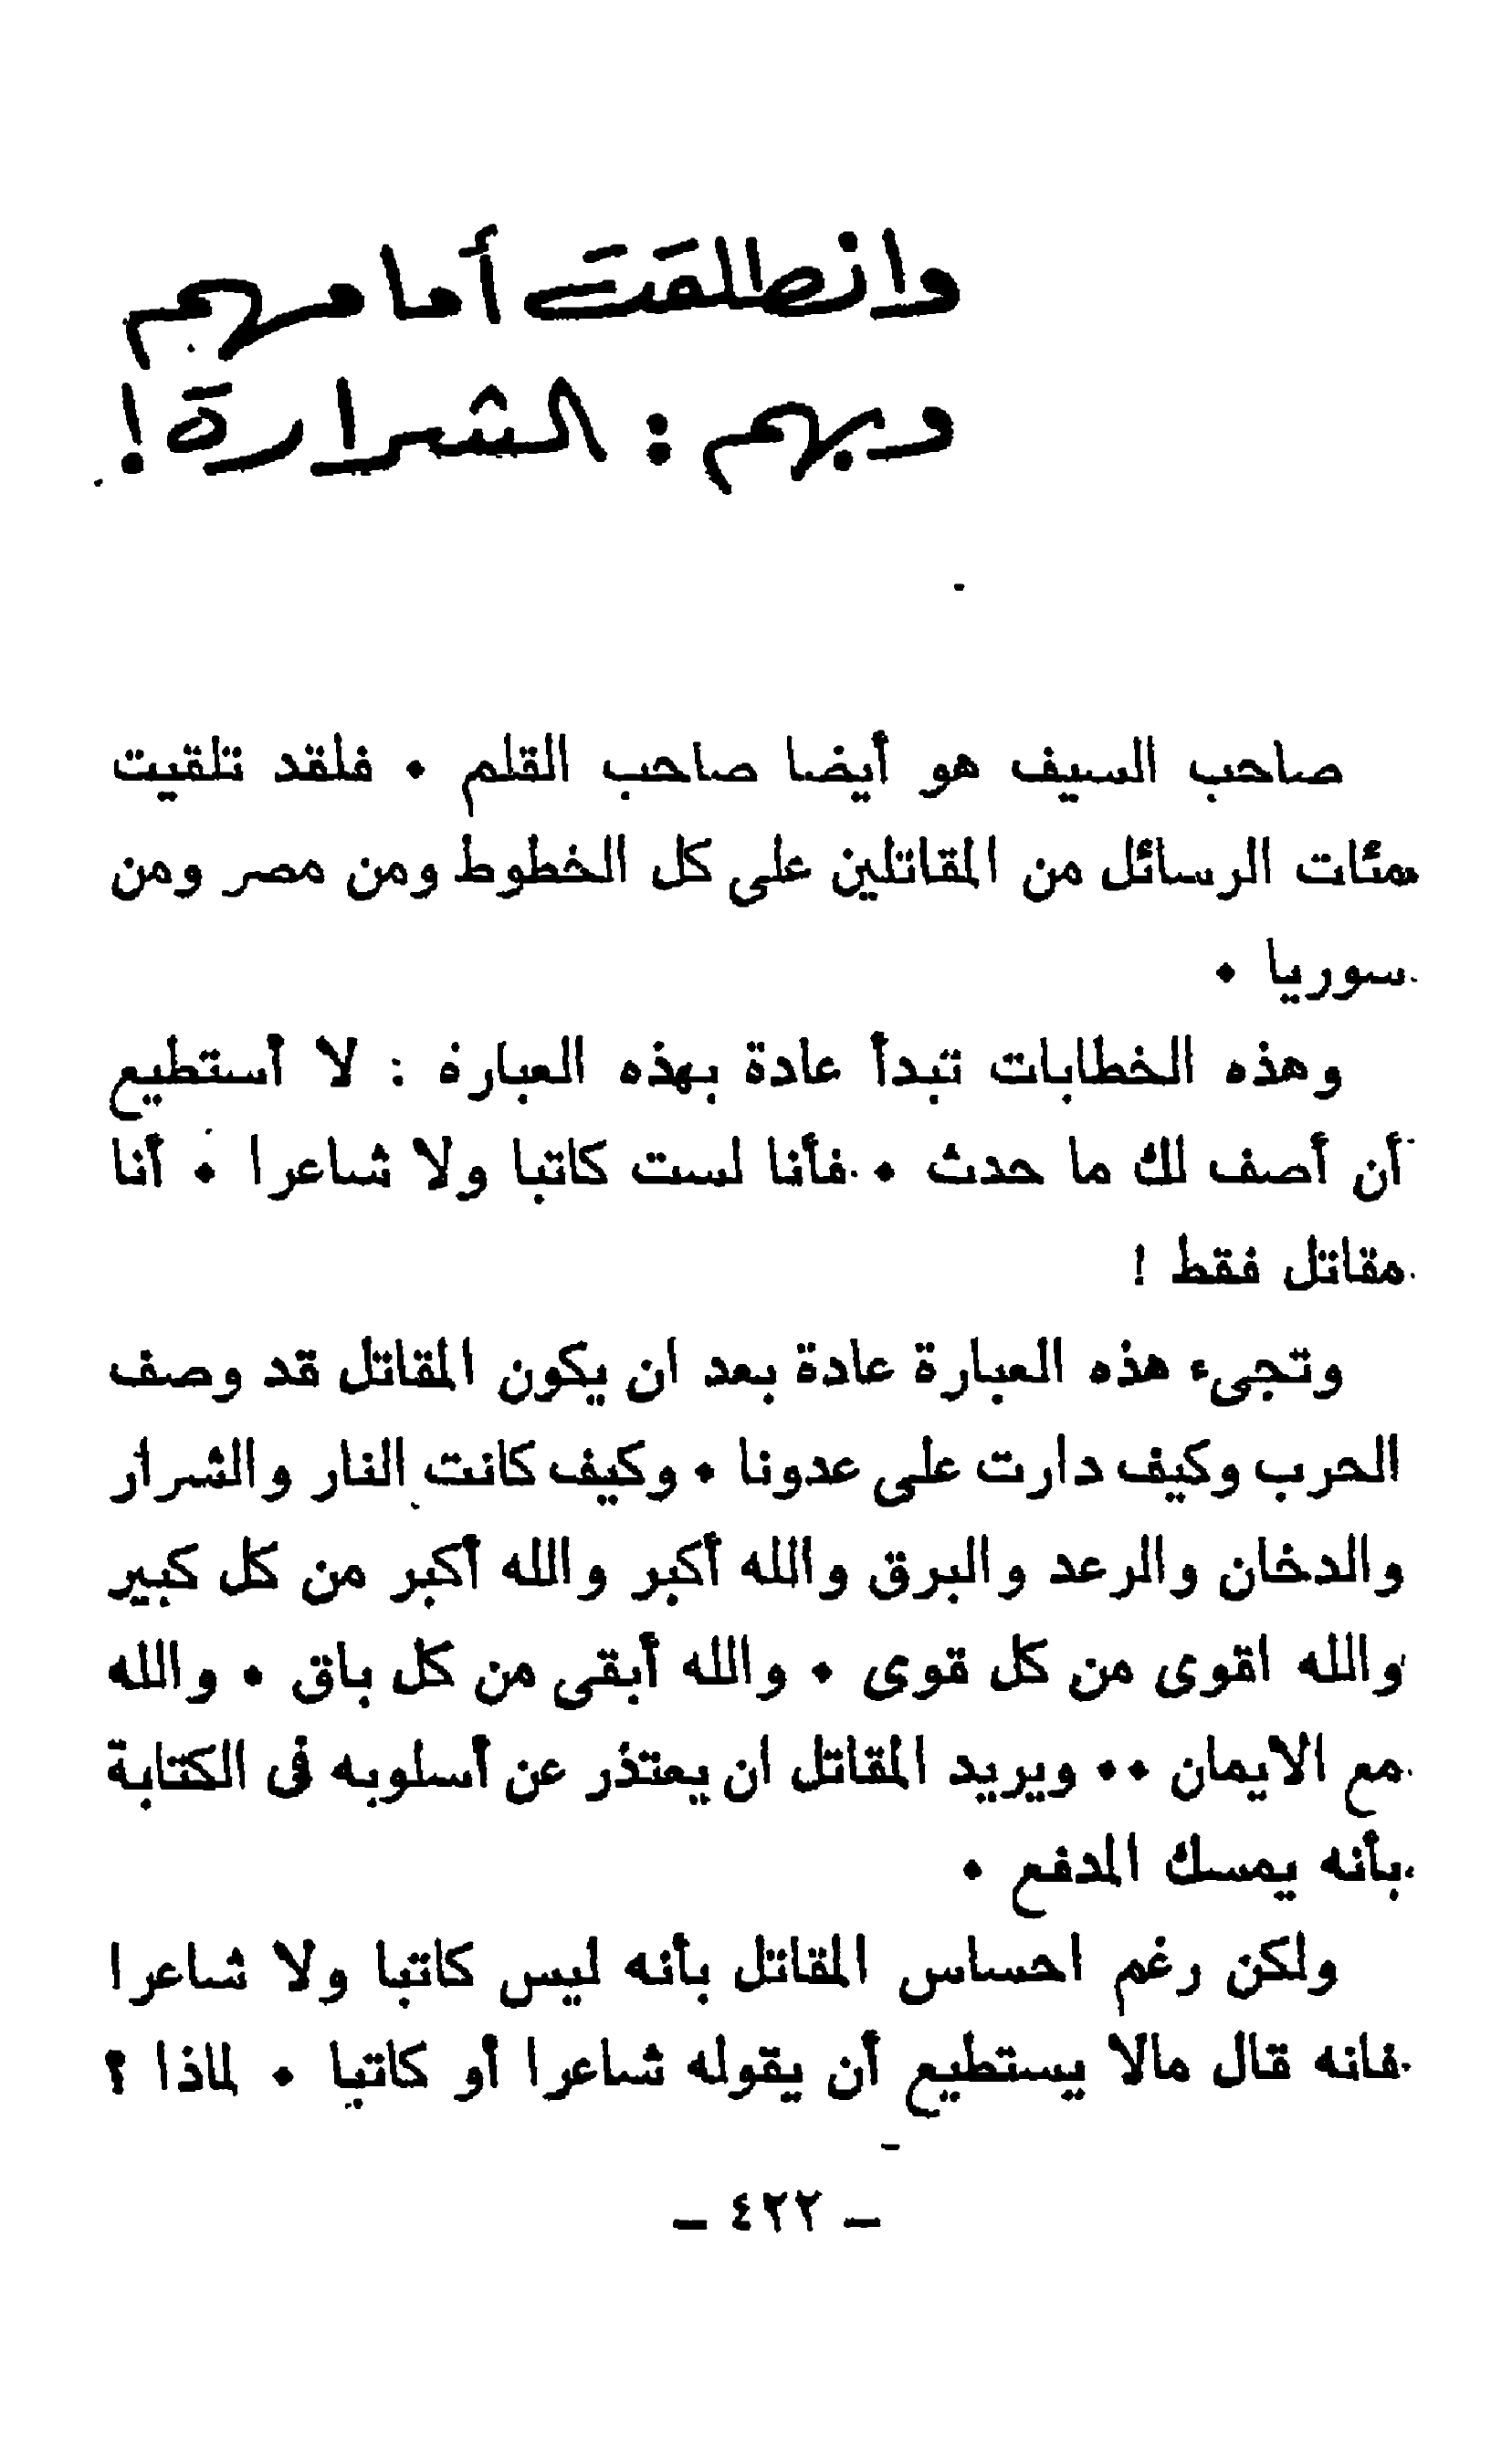 وانطلقت أمامهم
وبهم : الشرارة !
صاحب السيف هو أيضا صاحب القلم . فلقد تلقيت
مئات الرسائل من المقاتلين على كل الخطوط ومن مصر ومن
سوريا .
وهذه الخطابات تبدأ عادة بهذه العبارة : لا أستطيع
أن أصف لك ما حدث . فأنا لست كاتبا ولا شاعرا . أنا
مقاتل فقط !
وتجىء هذه العبارة عادة بعد ان يكون المقاتل قد وصف
الحرب وكيف دارت على عدونا . وكيف كانت النار والشرار
والدخان والرعد والبرق والله أكبر والله أكبر من كل كبير
والله اقوى من كل قوى . والله أبقى من كل باق . والله
مع الايمان .. ويريد المقاتل ان يعتذر عن أسلوبه فى الكتابة
بأنه يمسك المدفع .
ولكن رغم احساس المقاتل بأنه ليس كاتبا ولا شاعرا
فانه قال مالا يستطيع أن يقوله شاعرا أو كاتبا . لماذا ؟
– ٤٢٢ –